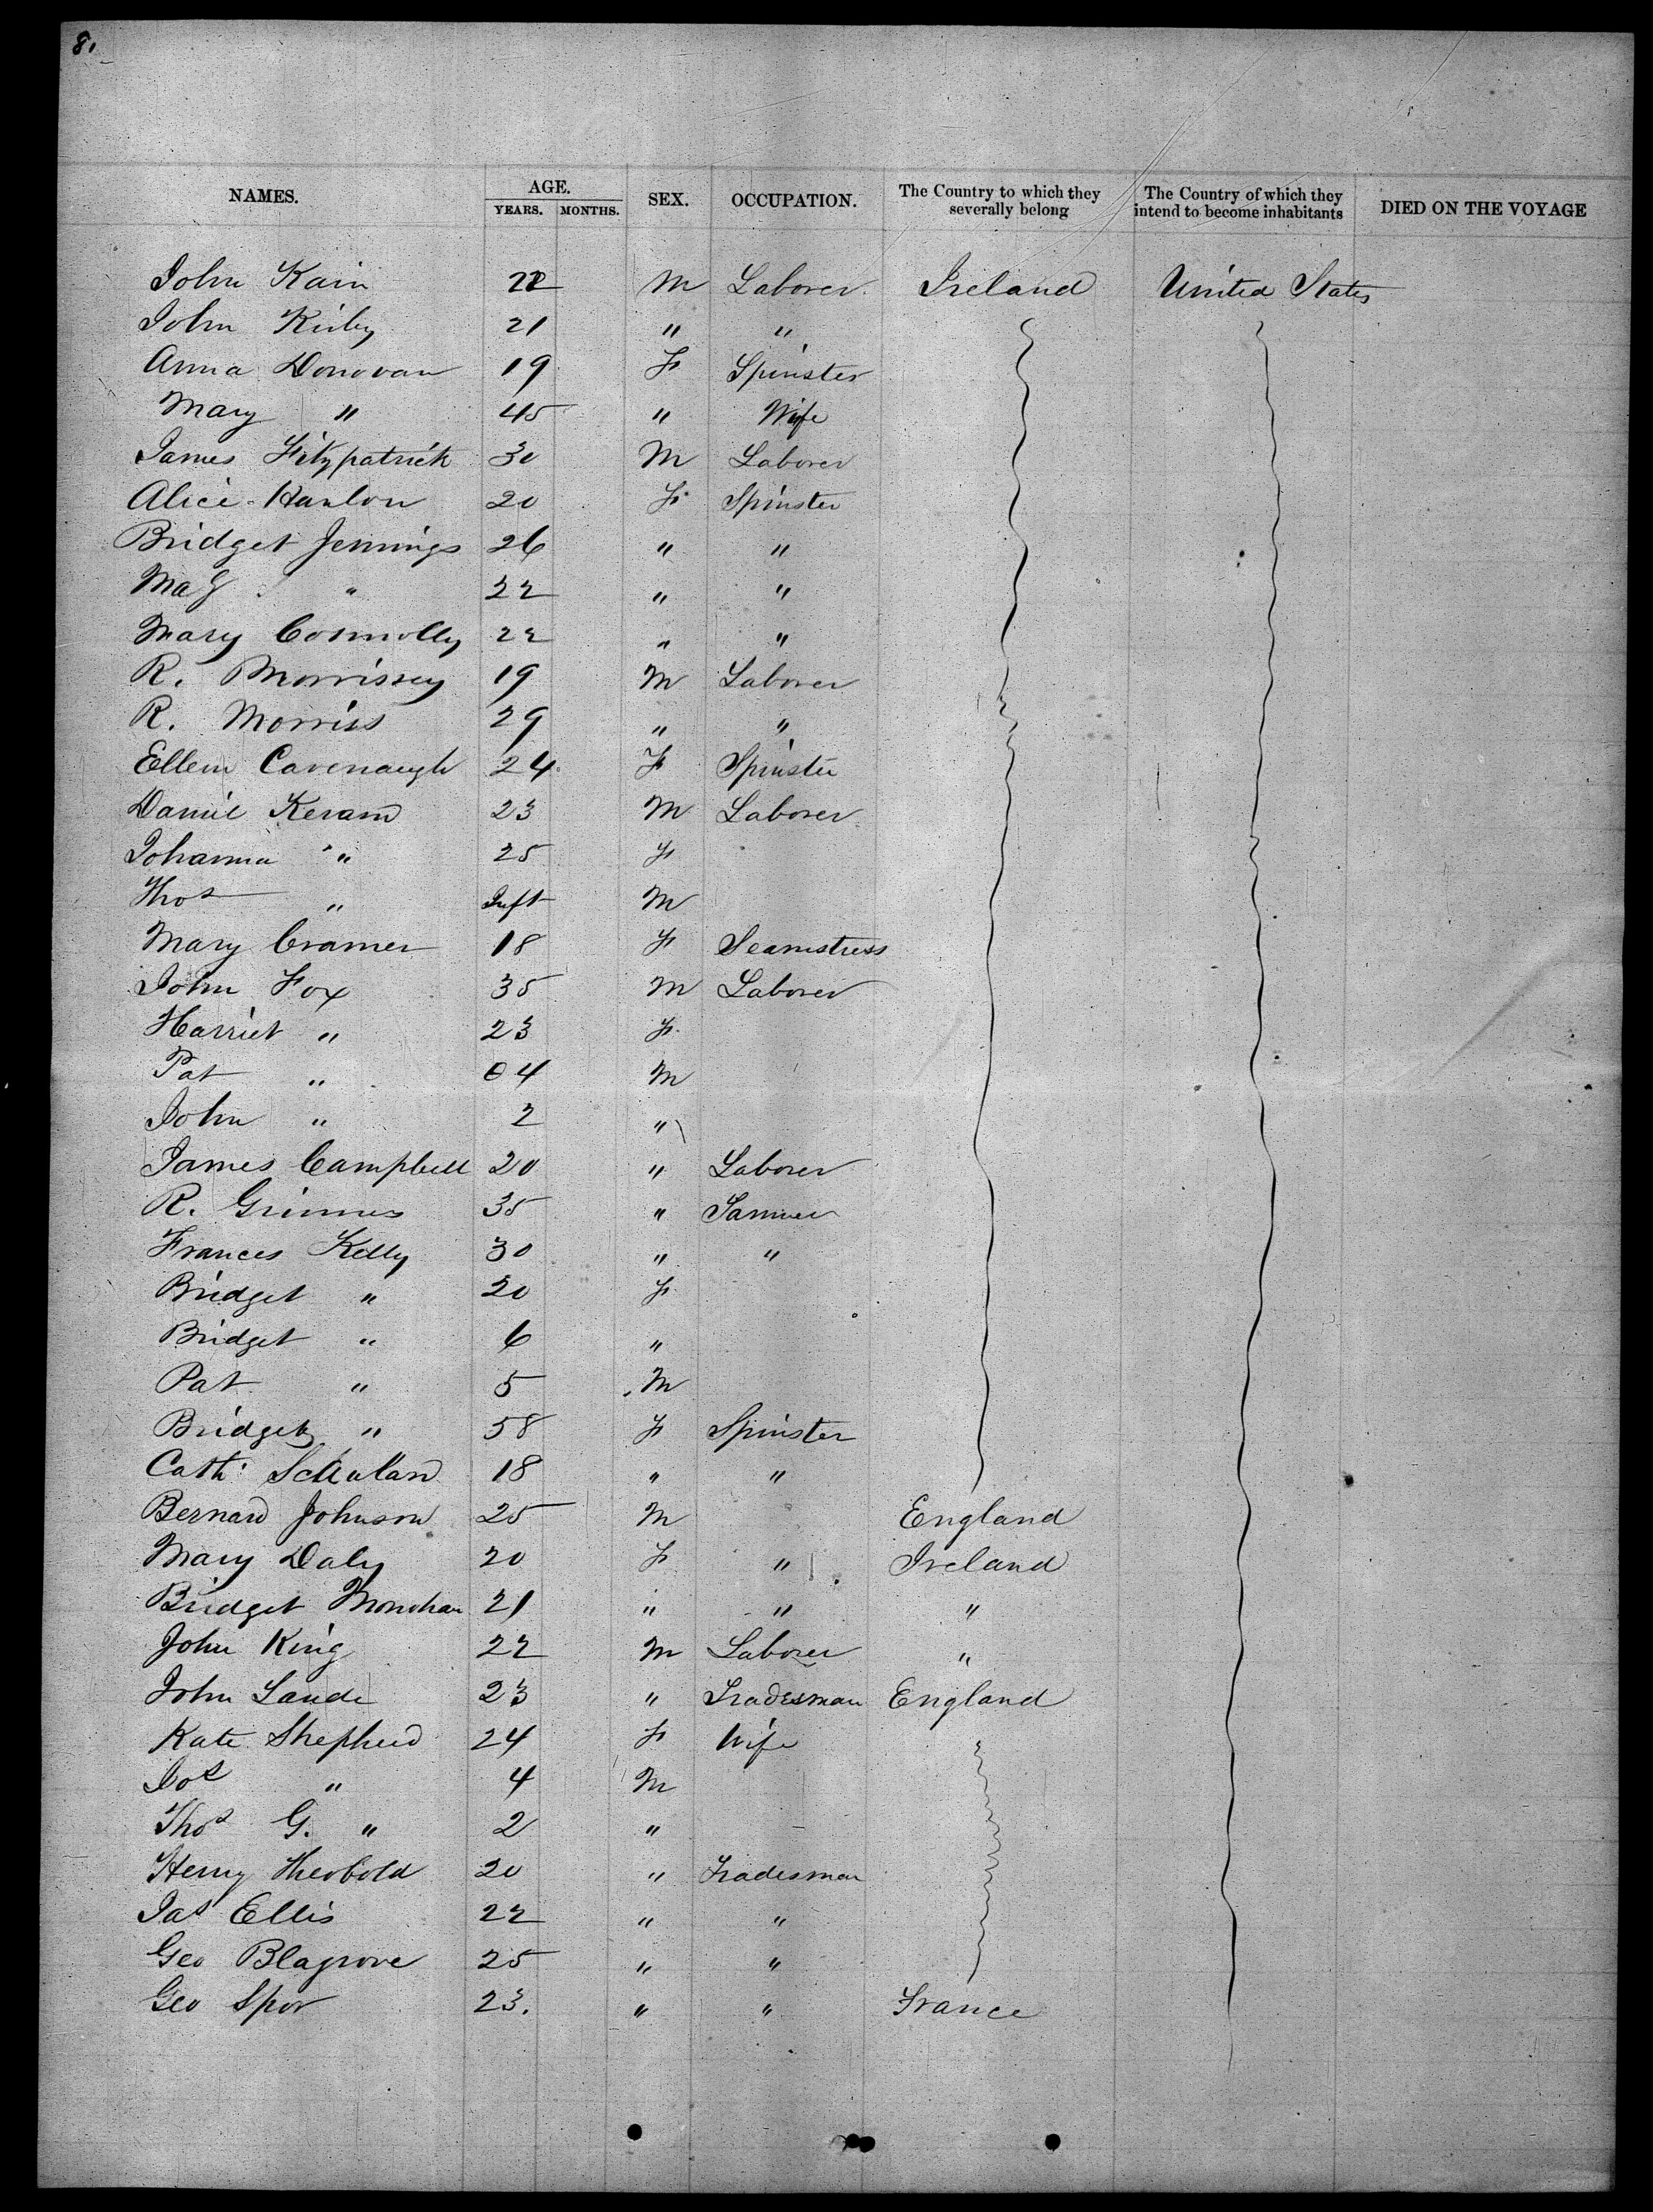 8.
NAMES. AGE. SEX. OCCUPATION. The Country to which they severally belong The Country of which they intend to become inhabitants DIED ON THE VOYAGE
YEARS. MONTHS.
John Kain 22 M Laborer. Ireland United States
John Kirby 21 " "
Anna Donovan 19 F Spinster
Mary " 45 " Wife
James Fitzpatrick 30 M Laborer
Alice Hanlon 20 F Spinster
Bridget Jennings 26 " "
Mag " 22 " "
Mary Connolly 22 " "
R. Morrissey 19 M Laborer
R. Morriss 29 " "
Ellen Cavenaugh 24 F Spinster
Daniel 23 M Laborer
Johanna " 25 F
Thos " Inft M
Mary Cramer 18 F Seamstress
John Fox 35 M Laborer
Harriet " 23 F
Pat " 04 M
John " 2 "
James Campbell 20 " Laborer
R. Grimes 35 " Farmer
Frances Kelly 30 " "
Bridget " 20 F
Bridget " 6 "
Pat " 5 M
Bridget " 58 F Spinster
Cath. 18 " "
Bernard Johnson 25 M England
Mary Daly 20 F " Ireland
Bridget Monohan 21 " " "
John King 22 M Laborer "
John 23 " Tradesman England
Kate Shepherd 24 F Wife
Jos " 4 M
Thos G. " 2 "
Henry Theobold 20 " Tradesman
Jas Ellis 22 " "
Geo Blagrove 25 " "
Geo Spor 23. " " France